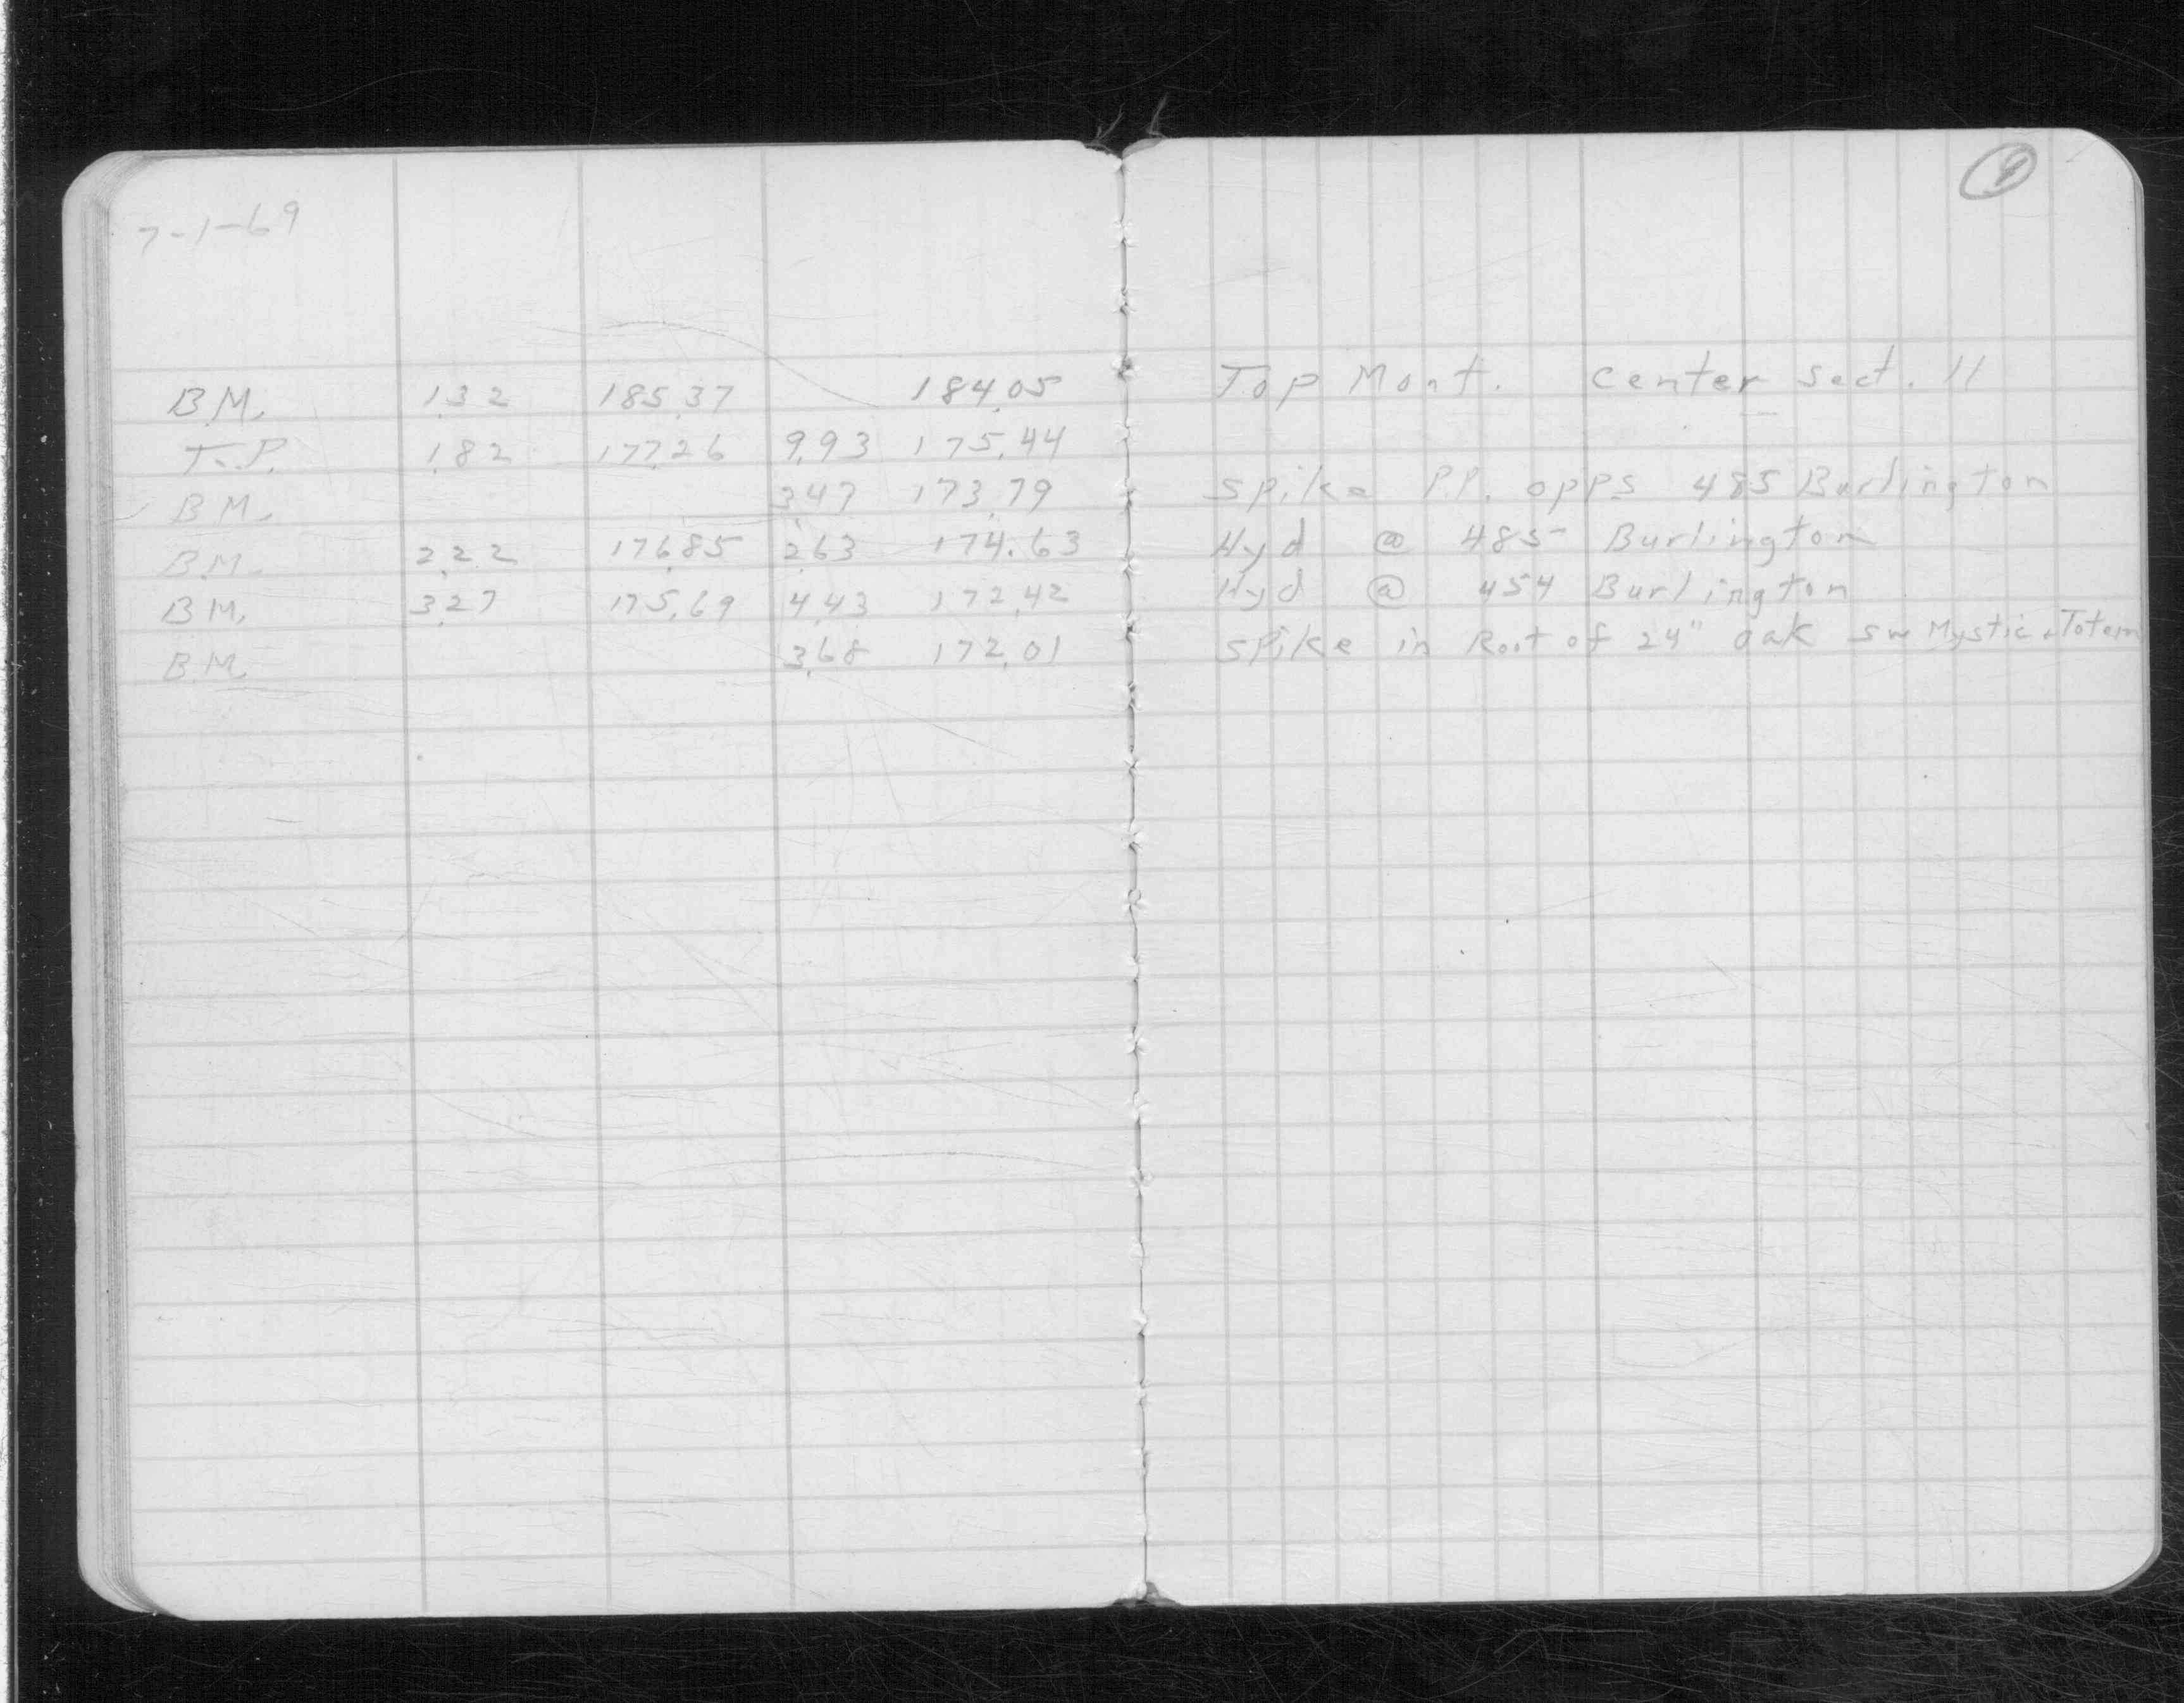 9
7-1-69
B.M. 1.32 185.37 184.05 Top Mont. Center Sect. 11
T.P. 1.82 177.26 9.93 175.44
B.M. 3.47 173.79 Spike P.P. opps 485 Burlington
B.M. 2.22 176.85 2.63 174.63 Hyd @ 485 Burlington
B.M. 3.27 175.69 4.43 172.42 Hyd @ 454 Burlington
B.M. 3.68 172.01 Spike in Root of 24" oak SW Mystic + Totem